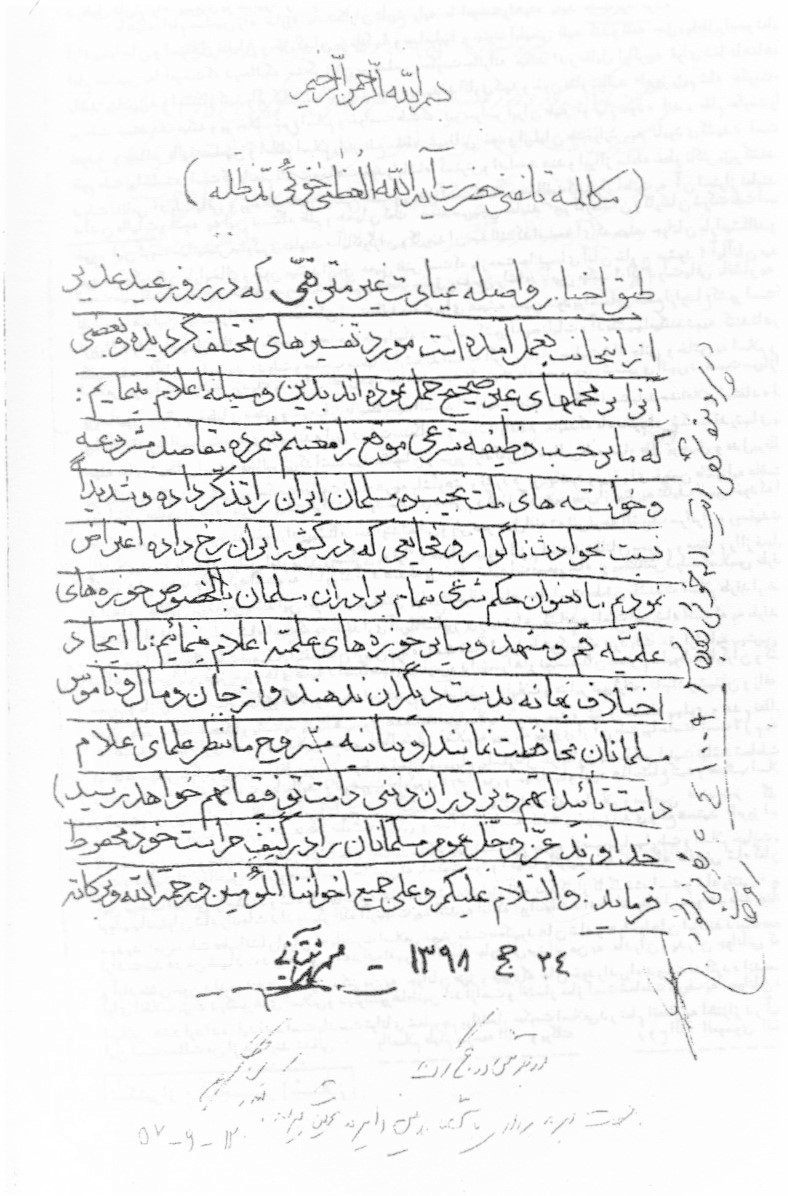 بسم الله الرحمن الرحیم
( مکالمه تلفنی حضرت آیة الله العظمی خوئی مدظله )
طبق اخبار واصله عیادت غیر مترقبی که در روز عید غدیر
از اینجانب بعمل آمده است مورد تفسیرهای مختلف گردیده و بعضی
آنرا بر محملهای غیر صحیح حمل نموده اند بدین وسیله اعلام مینمایم :
که ما بر حسب وظیفه شرعی موقع را مغتنم شمرده مقاصد مشروعه
و خواسته های ملت نجیب و مسلمان ایران را تذکر داده و شدیداً
نسبت بحوادث ناگوار و فجایعی که در کشور ایران رخ داده اعتراض
نمودیم ما بعنوان حکم شرعی بتمام برادران مسلمان بالخصوص حوزه های
علمیّه قم و مشهد و سایر حوزه های علمیه اعلام مینمائیم: با ایجاد
اختلاف بهانه بدست دیگران ندهند و از جان و مال و ناموس
مسلمانان محافظت نمایند و بیانیه مشروح ما بنظر علمای اعلام
دامت تأییداتهم و برادران دینی دامت توفیقاتهم خواهد رسید )
خداوند عزّ و جلّ عموم مسلمانان را در کنف حراست خود محفوظ
فرماید . والسلام علیکم و علی جمیع اخواننا المؤمنین و رحمة الله و برکاته
۲۴ ج ۱۳۹۸ -
۵۷-۹-۱۲